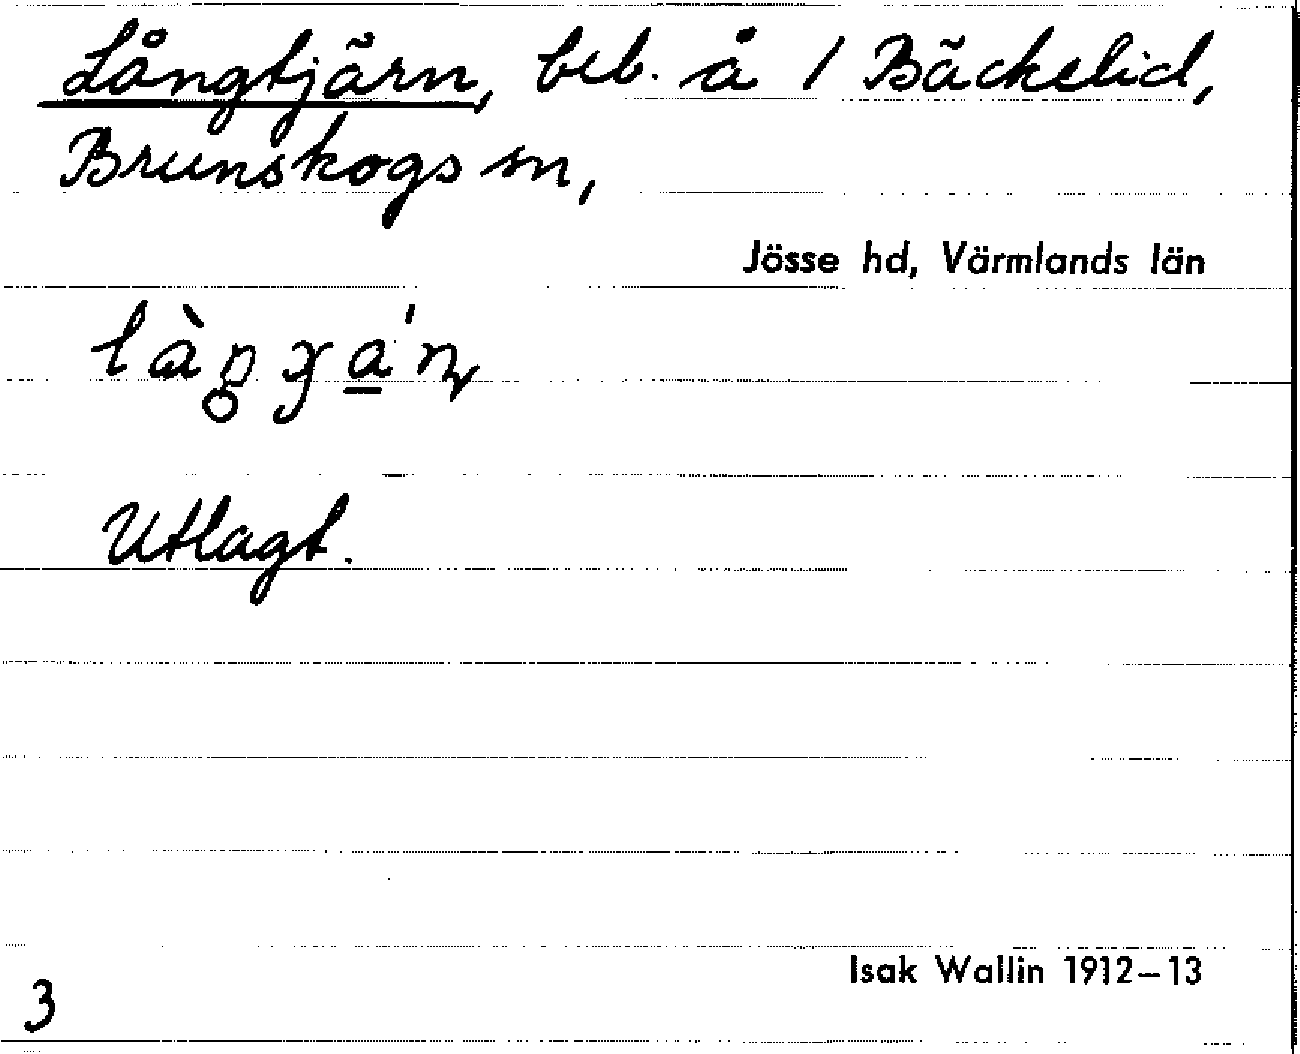 Långtjärn, beb. å 1 Bäckelid,
Brunskogs sn,
Jösse hd, Värmlands län
Utlagt.
Isak Wallin 1912–13
3